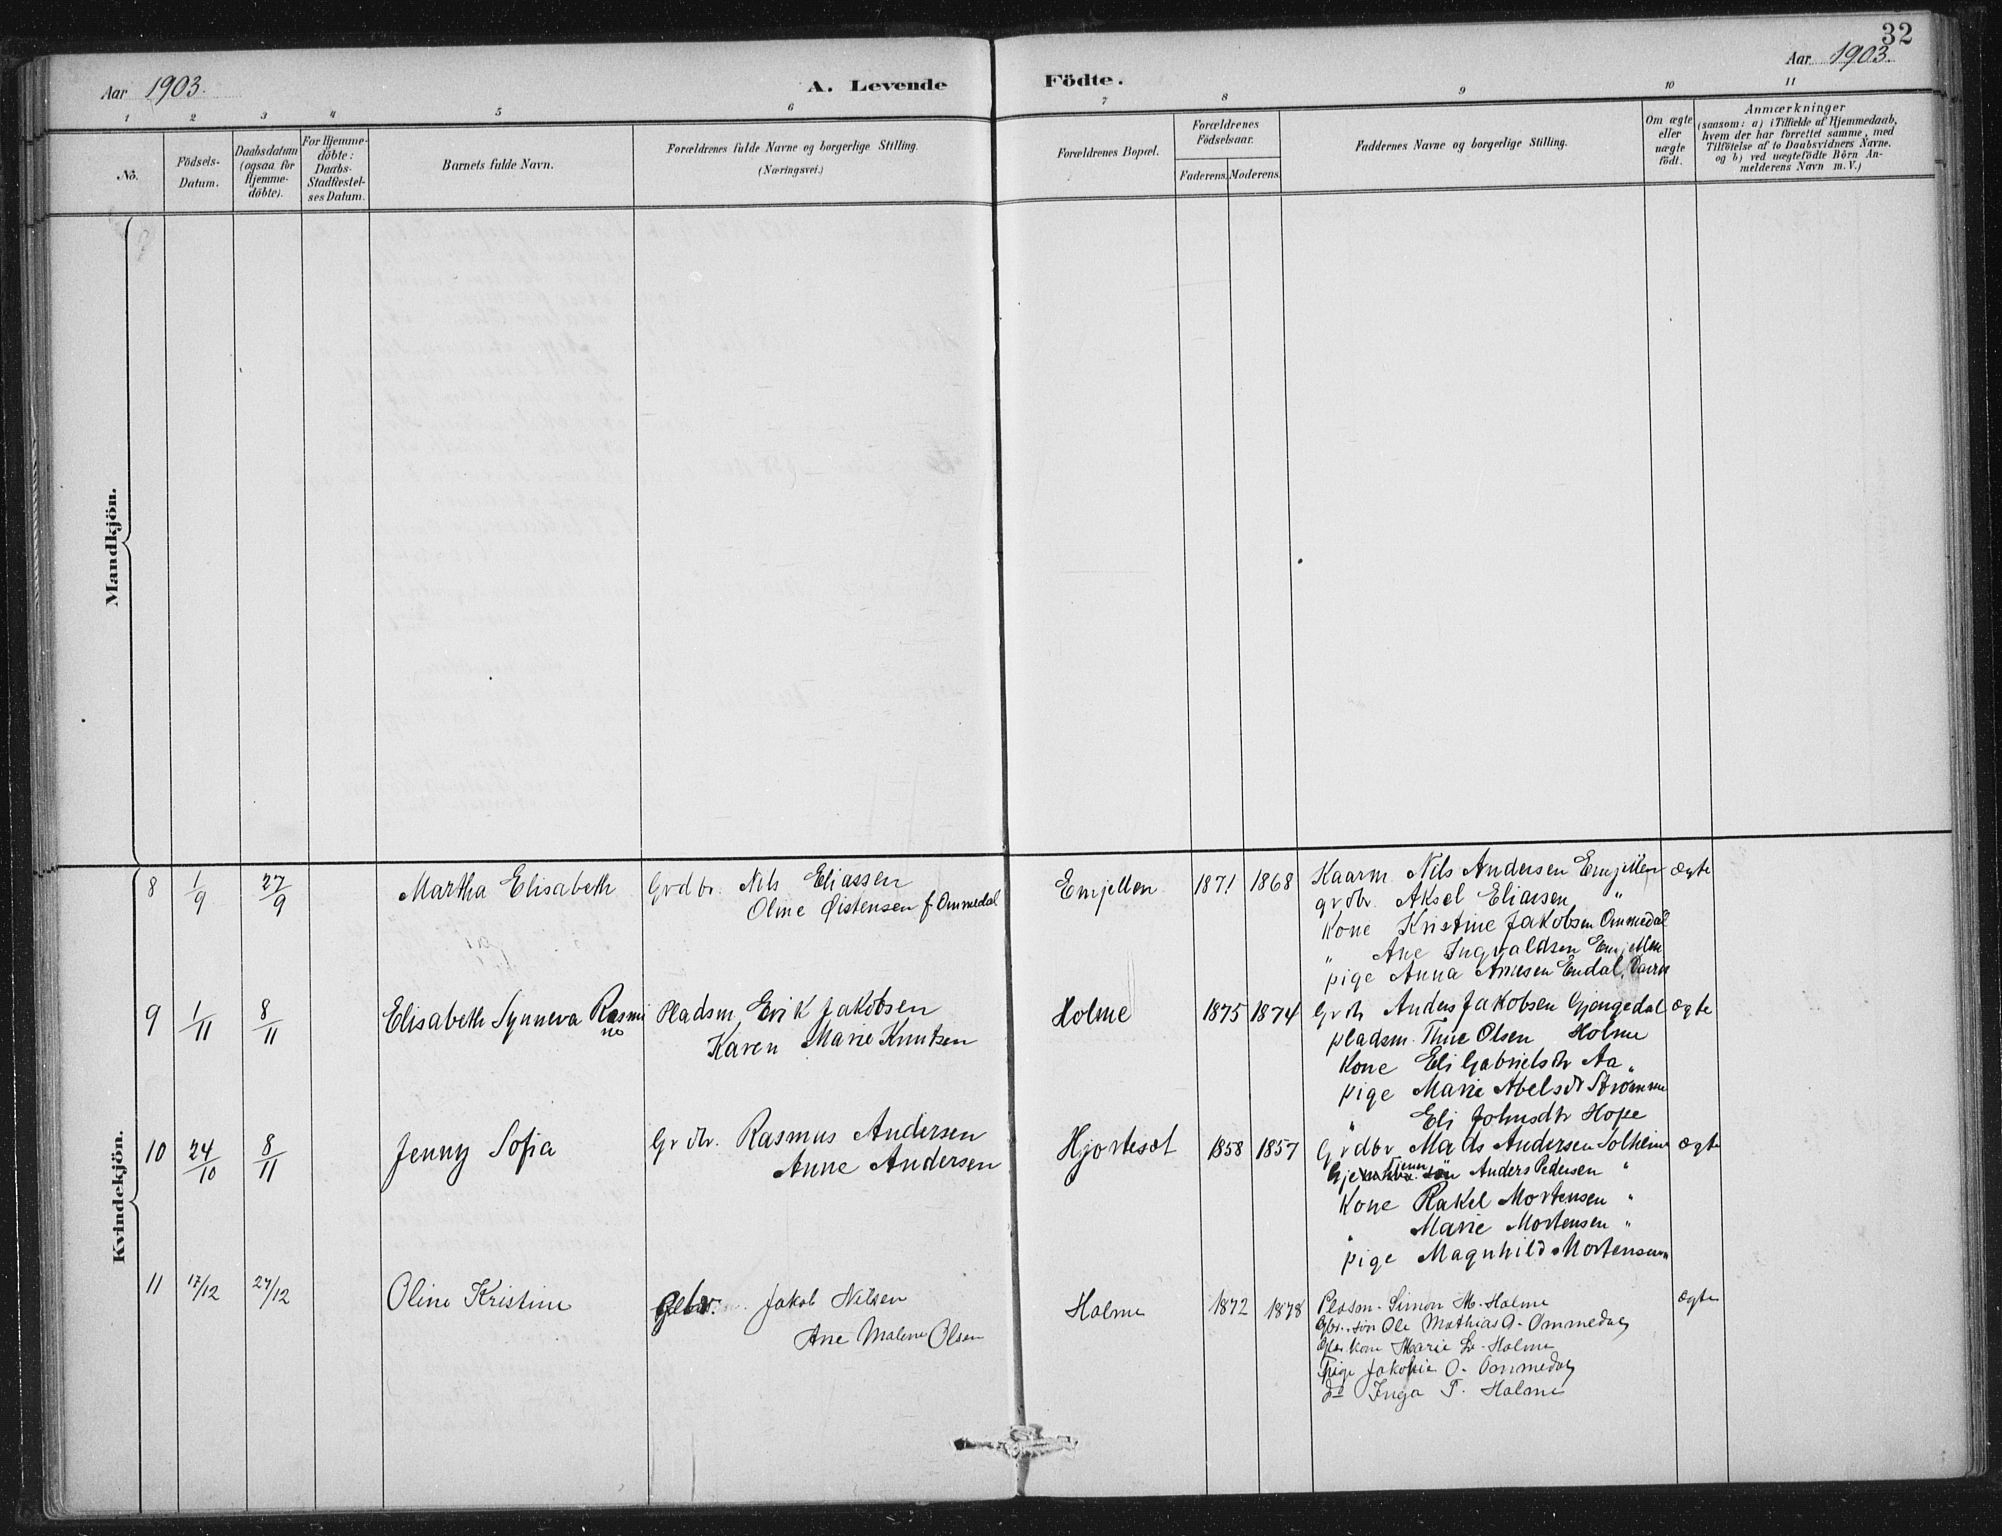 32
Aar 1903.
A. Levende Födte.
Aar 1903.
1 2 3 4 5 6 7 8 9 10 11
No.
Födsels-
Datum.
Daabsdatum
(ogsaa for
Hjemme-
döbte).
For Hjemme-
döbte:
Daabs-
Stadfæstel-
ses Datum.
Barnets fulde Navn.
Forældrenes fulde Navne og borgerlige Stilling.
(Næringsvei.)
Forældrenes Bopæl.
Forældrenes
Födselsaar.
Faderens. Moderens.
Faddernes Navne og borgerlige Stilling.
Om ægte
eller
uægte
födt.
Anmærkninger
(saasom: a) i Tilfælde af Hjemmedaab,
hvem der har forrettet samme, med
Tilföielse af to Daabsvidners Navne.
og b) ved uægtefödte Börn An-
melderens Navn m. V.)
Mandkjön.
Kvindekjön.
8 1/9 27/9 Martha Elisabeth
Grdbr. Nils Eliassen
Oline Øistensen f Ommedal
Emjellen 1871 1868
Kaarm Nils Andersen Emjellen
grdbr. Aksel Eliassen "
Kone Kristine Jakobsen Ommedal
" Ane Ingvaldsen Emjellen
pige Anna Endal,
ægte
9 1/11 8/11 Elisabeth Synneva Rasmi
ne
Pladsm. Erik Jakobsen
Karen Marie Knutsen
Holme 1875 1874
Anders Jakobsen Gjengedal
pladsm. Olsen Holme
Kone Eli Gabrielsdtr Aa "
pige Marie Abelsdtr Strømme
" Eli Johnsdtr Hope
ægte
10 24/10 8/11 Jenny Sofia
Grdbr. Rasmus Andersen
Anne Andersen
Hjorteset 1858 1857
Grdbr Mads Andersen Solheim
Anders Pedersen "
Kone Rakel Mortensen "
" Marie Mortensen "
pige Magnhild Mortensen "
ægte
11 17/12 27/12 Oline Kristine
Gbr. Jakob Nilsen
Ane Malene Olsen
Holme 1872 1878
Pladsm. Simon M. Holme
Gbr. søn Ole Mathias A. Ommedal
kone Marie Holme
Pige Jakobie O. Ommedal
do Inga T. Holme
ægte